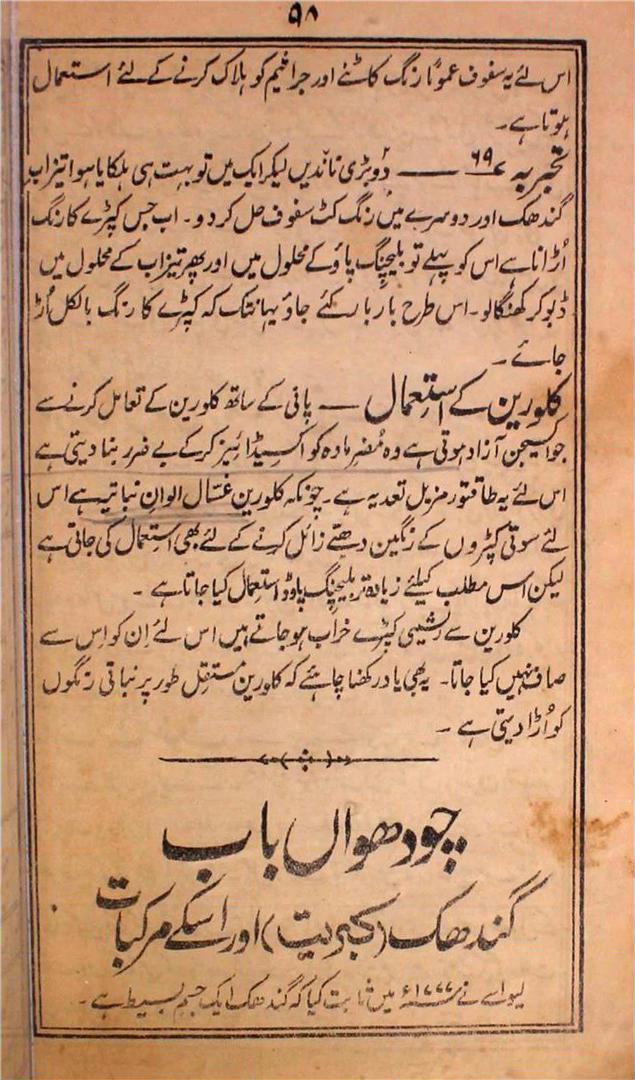 ۹۸
اس لئے یہ سفوف عموماً رنگ کاٹنے اور جراثیم کو ہلاک کرنے کے لئے استعمال
ہوتا ہے۔
تجربہ ۶۹ — دو بڑی ناندیں لیکر ایک میں تو بہت ہی ہلکا یا ہوا تیزاب
گندھک اور دوسرے میں رنگ کٹ سفوف حل کر دو۔ اب جس کپڑے کا رنگ
اُڑانا ہے اس کو پہلے تو بلیچنگ پاؤ کے محلول میں اور پھر تیزاب کے محلول میں
ڈبو کر کھنگالو۔ اس طرح بار بار کئے جاؤ یہانتک کہ کپڑے کا رنگ بالکل اُڑ
جائے۔
کلورین کے استعمال — پانی کے ساتھ کلورین کے تعامل کرنے سے
جو آکسیجن آزاد ہوتی ہے وہ مُضر مادہ کو آکسیڈائیز کر کے بے ضرر بنا دیتی ہے
اس لئے یہ طاقتور مزیل تعدیہ ہے۔ چونکہ کلورین غسّال الوانِ نباتیہ ہے اس
لئے سوتی کپڑوں کے رنگین دھبّے زائل کرنے کے لئے بھی استعمال کی جاتی ہے
لیکن اس مطلب کیلئے زیادہ تر بلیچنگ پاوڈ استعمال کیا جاتا ہے۔
کلورین سے ریشمی کپڑے خراب ہو جاتے ہیں اس لئے اِن کو اِس سے
صاف نہیں کیا جاتا۔ یہ بھی یاد رکھنا چاہئے کہ کلورین مستقل طور پر نباتی رنگوں
کو اُڑا دیتی ہے۔
چودھواں باب
گندھک (کبریت) اور اسکے مرکبات
لیواسے نے ۱۷۷۷ء میں ثابت کیا کہ گندھک ایک جسمِ بسیط ہے۔